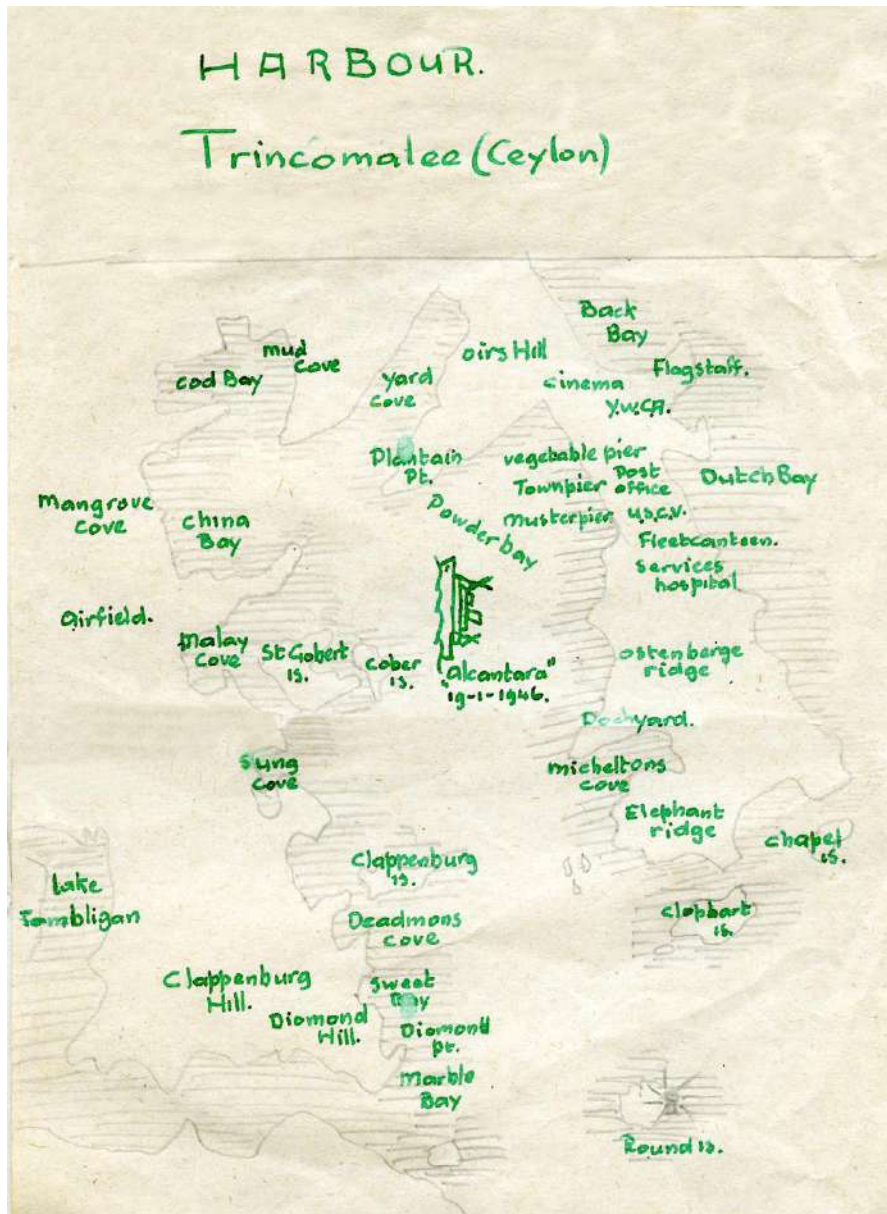 HARBOUR.
Trincomalee (Ceylon)
Back
Bay
mud
Cove
oirs Hill
cod Bay
yard
cove
cinema
Flagstaff.
Y.W.CA.
Plantain
Pt.
vegetable pier
Townpier
Post
office
Dutch Bay
Mangrove
cove
China
Bay
Powderbay
Musterpier
U.S.C.V.
Fleetcanteen.
Services
hospital
Airfield.
Malay
Cove
St Gobert
is.
Cober
is.
"Alcantara"
19-1-1946.
Ostenberge
ridge
Dockyard.
Sung
cove
micheltons
cove
Elephant
ridge
Chapel
is.
Clappenburg
is.
Lake
Tambligan
Deadmons
cove
Clophart
is.
Clappenburg
Hill.
Sweet
Bay
Diomond
Hill.
Diomond
pt.
Marble
Bay
Round is.